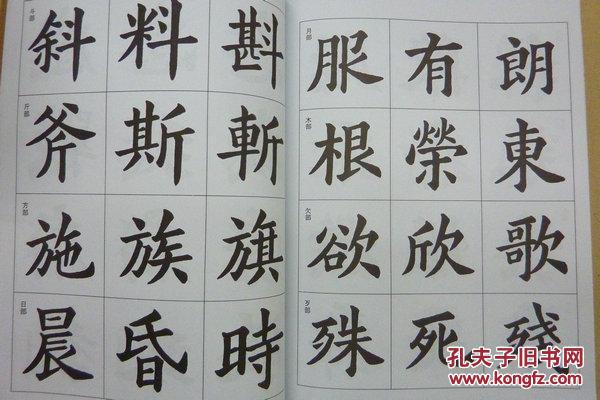 斗部
斜 料 斟
斤部
斧 斯 斬
方部
施 族 旗
日部
晨 昏 時
月部
服 有 朗
木部
根 榮 東
欠部
欲 欣 歌
歹部
殊 死 殘
孔夫子旧书网
www.kongfz.com